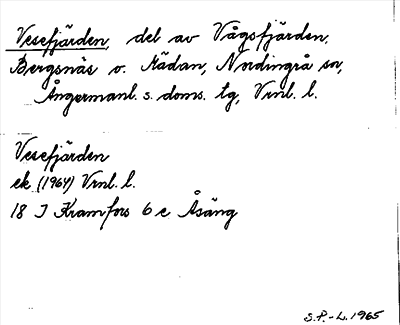 Vesefjärden, del av Vågsfjärden,
Bergsnäs o. Rädan, Nordingrå sn,
Ångermanl. s. doms. tg, Vrnl. l.
Vesefjärden
ek (1964) Vrnl. l.
18 I Kramfors 6 c Åsäng
S.P.-L. 1965